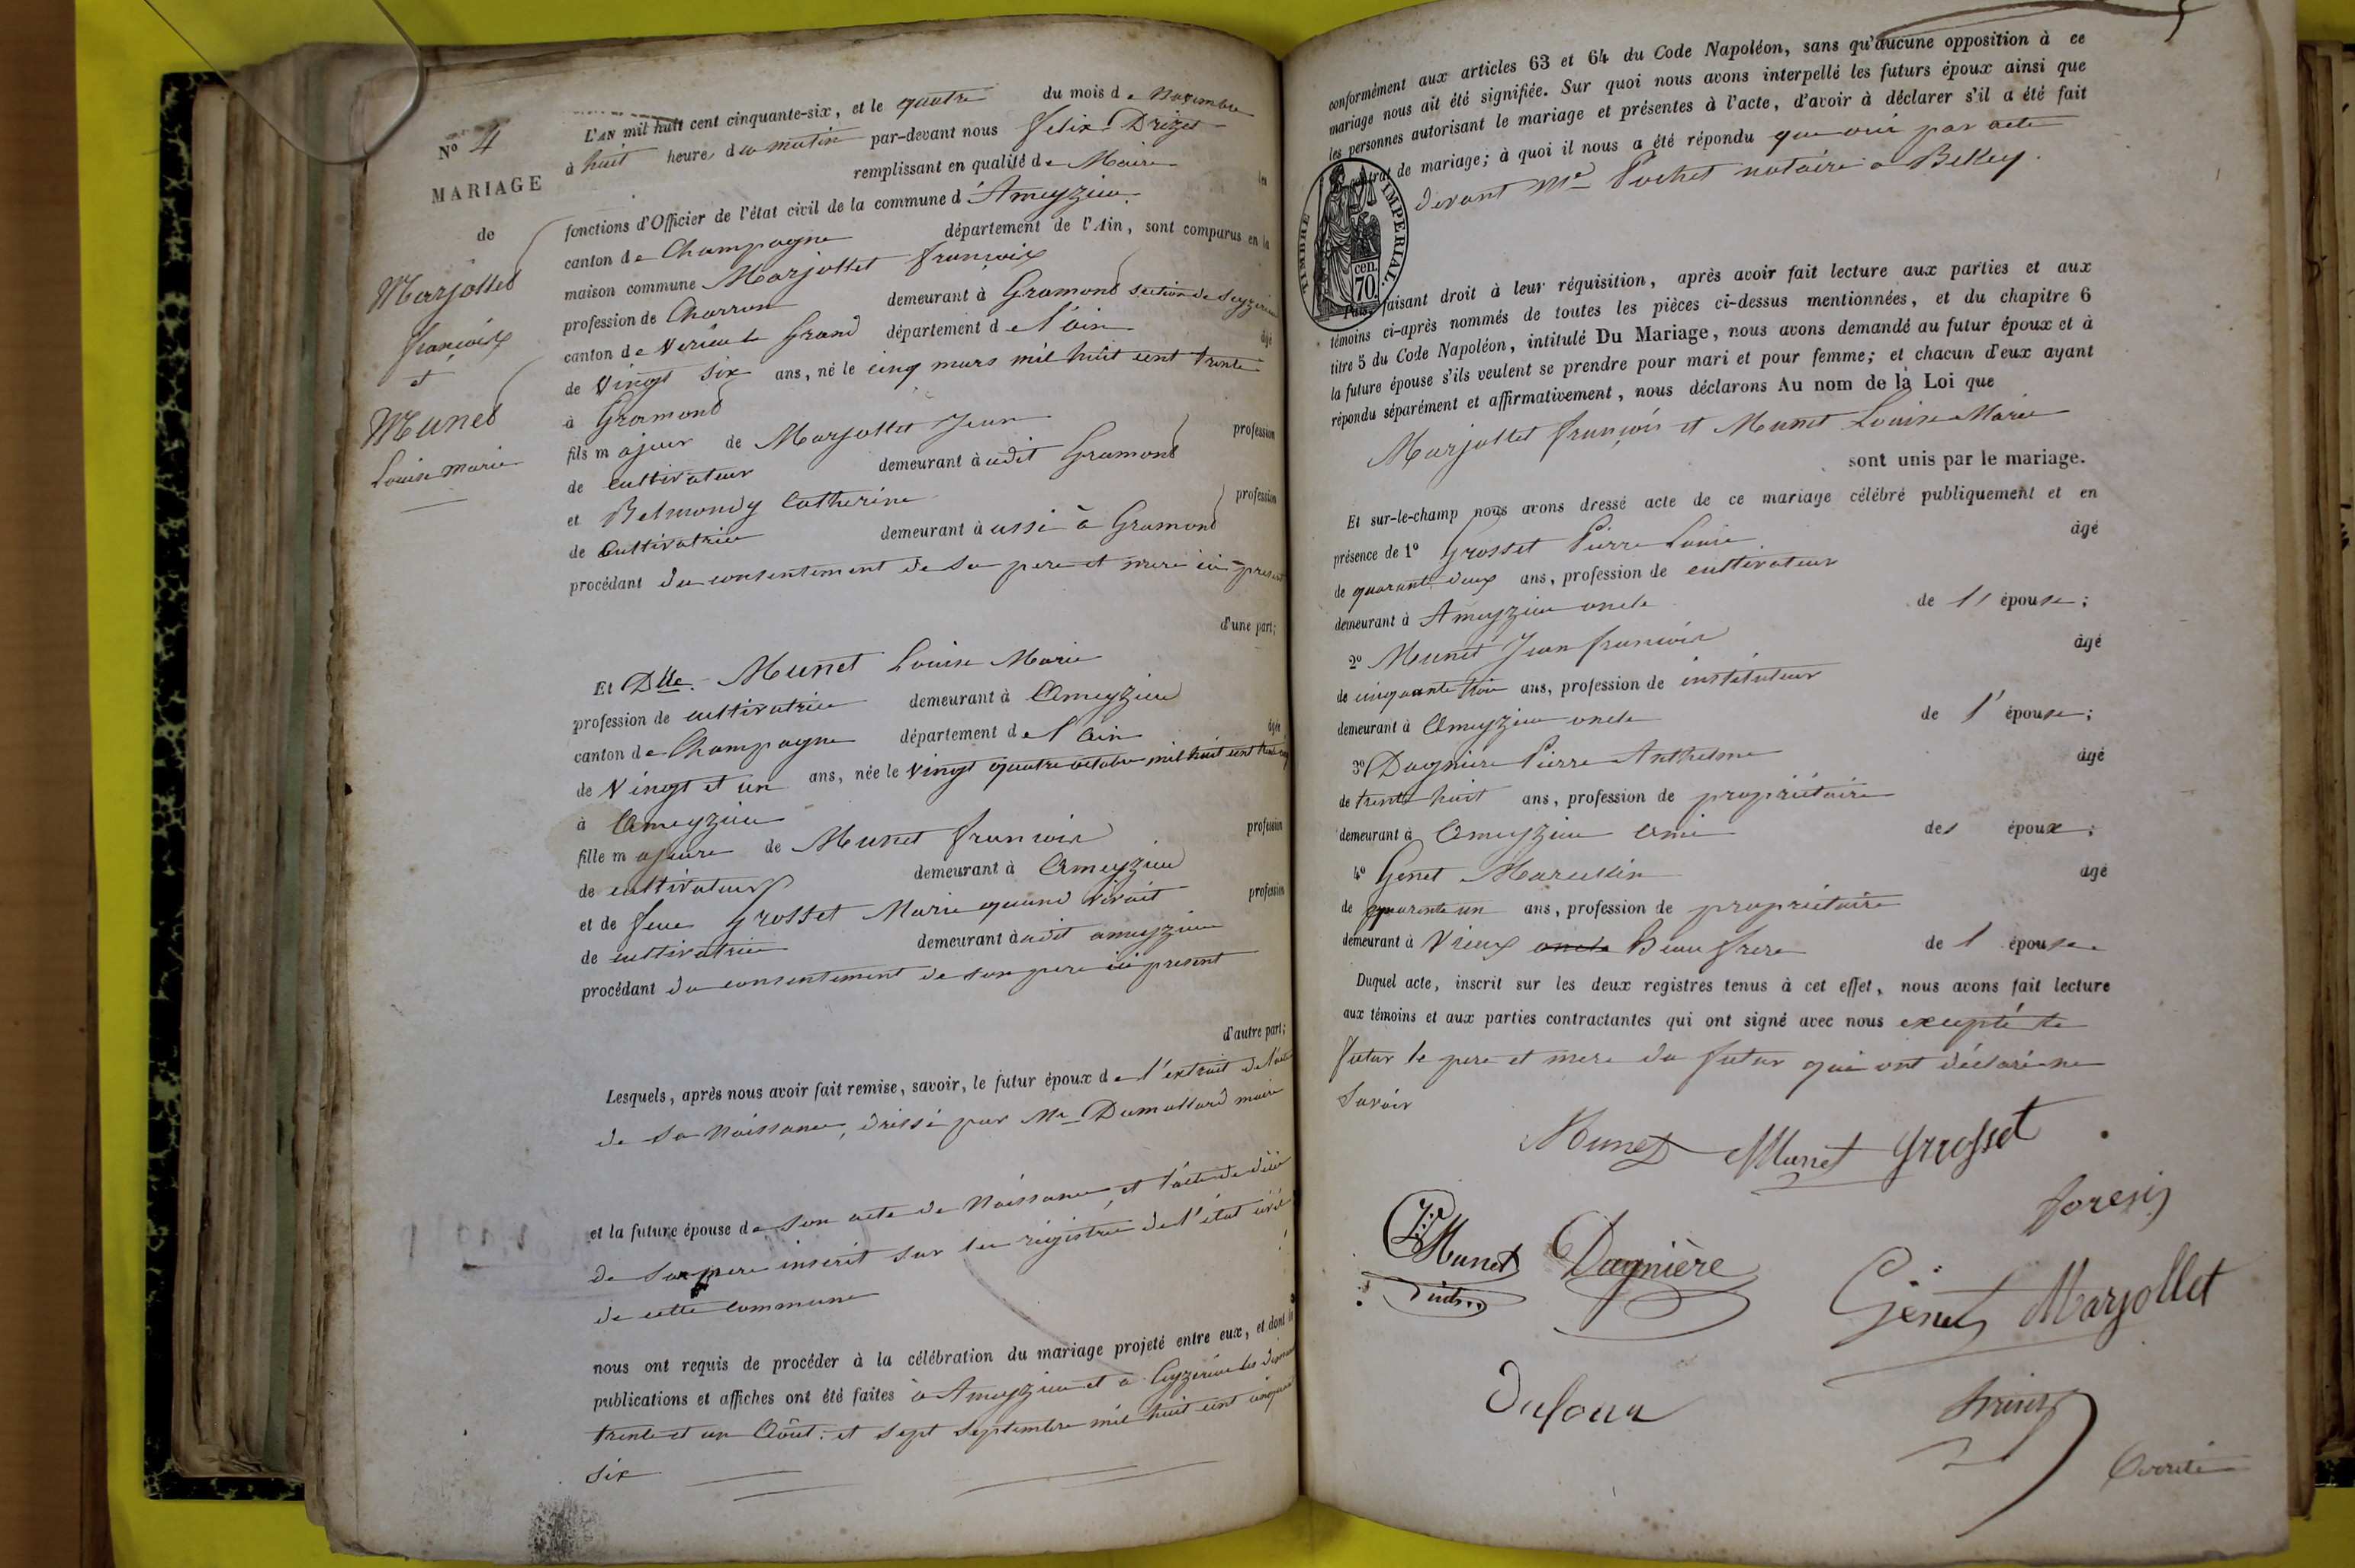 N° 4
MARIAGE
de
Marjollet
françoix
et
Munet
Louise marie
L'AN mil huit cent cinquante-six, et le quatre du mois de Novembre
à huit heures du matin par-devant nous felix Drizet
remplissant en qualité de Maire les
fonctions d'Officier de l'état civil de la commune d'Ameyzieu
canton de Champagne département de l'Ain, sont comparus en la
maison commune Marjollet françoix
profession de Charron demeurant à Gramond section de Seyzerieu
canton de Virieu le Grand département de l'ain âgé
de Vingt six ans, né le cinq mars mil huit cent trente
à Gramond
fils majeur de Marjollet Jean profession
de cultivateur demeurant à udit Gramond
et Belmondy Catherine profession
de Cultivatrice demeurant à ussi à Gramond
procédant du consentement de sa pere et mere ici present
d'une part;
Et Dlle Munet Louise Marie
profession de cultivatrice demeurant à Ameyzieu
canton de Champagne département de l'ain âgée
de Vingt et un ans, née le Vingt quatre octobre mil huit cent
à Ameyzieu
fille majeure de Munet francois profession
de cultivateur demeurant à Ameyzieu
et de feue Grosset Marie quand vivait profession
de cultivatrice demeurant à udit ameyzieu
procédant du consentement de son pere ici present
d'autre part;
Lesquels, après nous avoir fait remise, savoir, le futur époux de l'extrait de l'acte
de sa Naissance, dréssé par Mr Dumollard maire
et la future épouse de son acte de Naissance, et l'acte de décè
de sa mere inscrit sur les régistres de l'état civil
de cette commune
nous ont requis de procéder à la célébration du mariage projeté entre eux, et dont les
publications et affiches ont été faites à Ameyzieu et à Ceyzerieu les
trente et un Août et sept Septembre mil huit cent cinquante
six
conformément aux articles 63 et 64 du Code Napoléon, sans qu'aucune opposition à ce
mariage nous ait été signifiée. Sur quoi nous avons interpellé les futurs époux ainsi que
les personnes autorisant le mariage et présentes à l'acte, d'avoir à déclarer s'il a été fait
contrat de mariage; à quoi il nous a été répondu que oui par acte
devant Me Pochet notaire à Belley.
TIMBRE IMPERIAL
cen.
70.
Puis, faisant droit à leur réquisition, après avoir fait lecture aux parties et aux
témoins ci-après nommés de toutes les pièces ci-dessus mentionnées, et du chapitre 6
titre 5 du Code Napoléon, intitulé Du Mariage, nous avons demandé au futur époux et à
la future épouse s'ils veulent se prendre pour mari et pour femme; et chacun d'eux ayant
répondu séparément et affirmativement, nous déclarons Au nom de la Loi que
Marjollet françois et Munet Louise Marie
sont unis par le mariage.
Et sur-le-champ nous avons dressé acte de ce mariage célébré publiquement et en
présence de 1° Grosset Pierre Louis âgé
de quarante deux ans, profession de cultivateur
demeurant à Ameyzieu oncle de l' épouse;
2° Munet Jean francois âgé
de cinquante trois ans, profession de instituteur
demeurant à Ameyzieu oncle de l' épouse;
3° Dagniere Pierre Anthelme âgé
de trente huit ans, profession de propriétaire
demeurant à Ameyzieu ami des époux;
4° Genet Marcellin âgé
de quarente un ans, profession de propriétaire
demeurant à Vieux oncle Beau frere de l épouse
Duquel acte, inscrit sur les deux registres tenus à cet effet, nous avons fait lecture
aux témoins et aux parties contractantes qui ont signé avec nous excepté le
futur le pere et mere du futur qui ont déclaré ne
Savoir
Munet Munet Grosset
Munet Dagnière
Genet Marjollet
Dufour